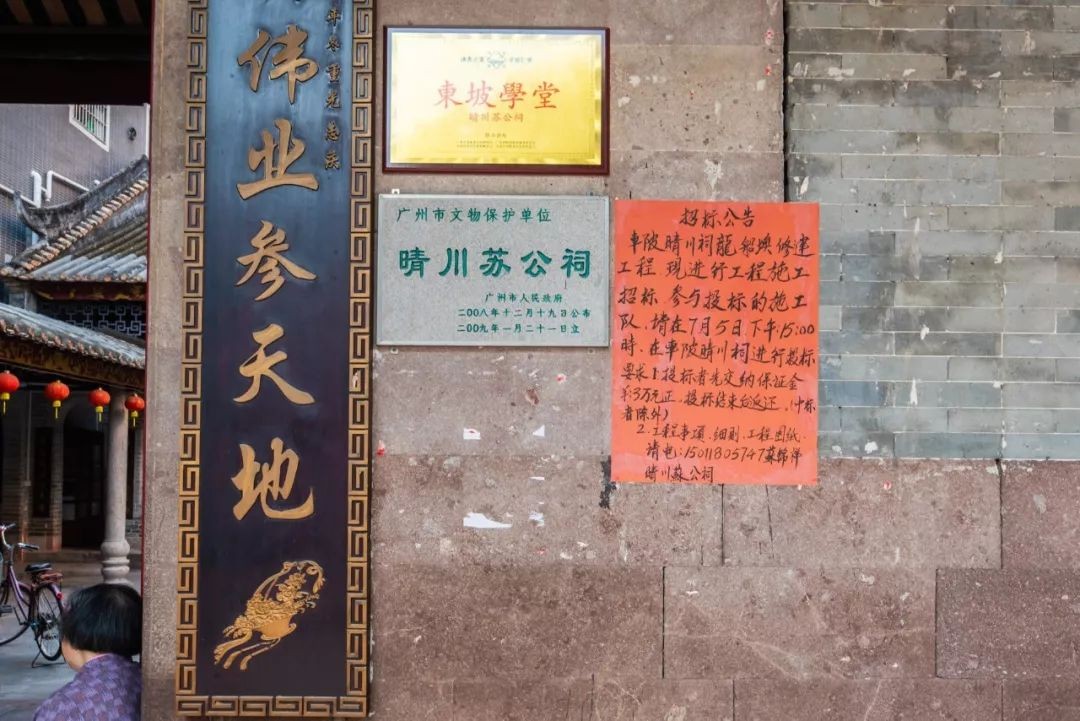 伟业参天地
東坡學堂
晴川苏公祠
广州市文物保护单位
晴川苏公祠
广州市人民政府
二〇〇八年十二月十九日公布
二〇〇九年一月二十一日立
招标公告
車陂晴川祠龍船塽修建
工程,現進行工程施工
招标,参与投标的施工
队,请在7月5日下午15:00
時,在車陂晴川祠进行投标
要求1.投标者先交纳保证金
3万元正,投标结束后返还,(中标
者除外)
2.工程事項、细则、工程图纸
请电:15011805747蘇锦洋
晴川蘇公祠